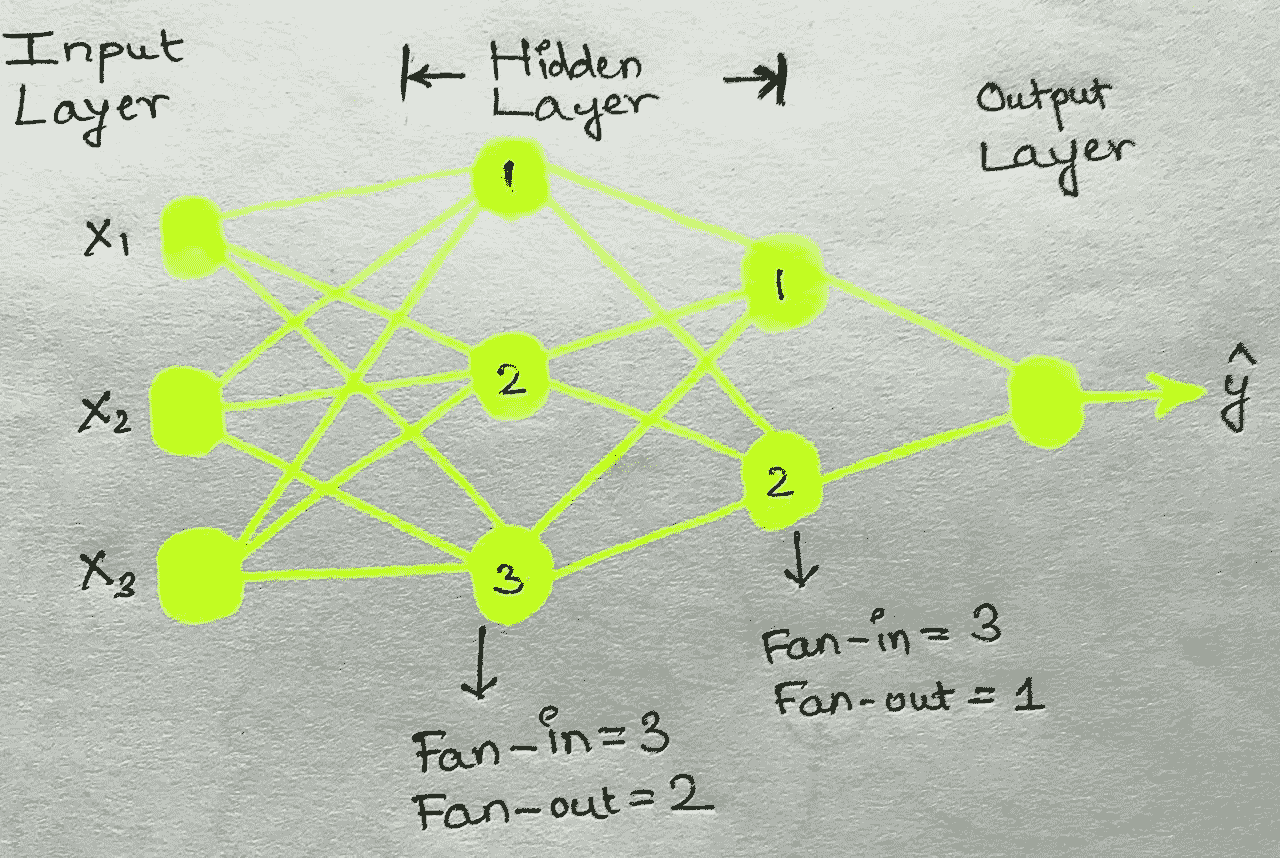 Input
Layer
Hidden
Layer
Output
Layer
X₁
X₂
X₃
1
2
3
1
2
ŷ
Fan-in = 3
Fan-out = 1
Fan-in = 3
Fan-out = 2